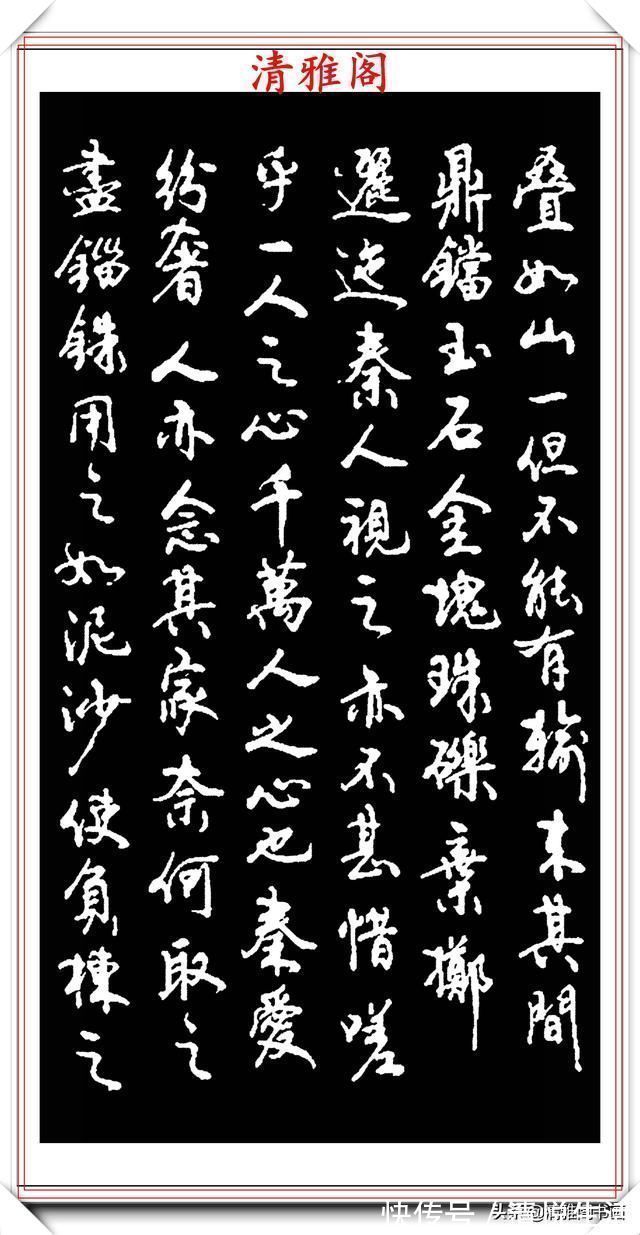 清雅阁
叠如山一但不能有输来其間
鼎鐺玉石金塊珠礫棄擲
邐迤秦人視之亦不甚惜嗟
乎一人之心千萬人之心也秦愛
紛奢人亦念其家奈何取之
盡錙銖用之如泥沙使負棟之
快传号